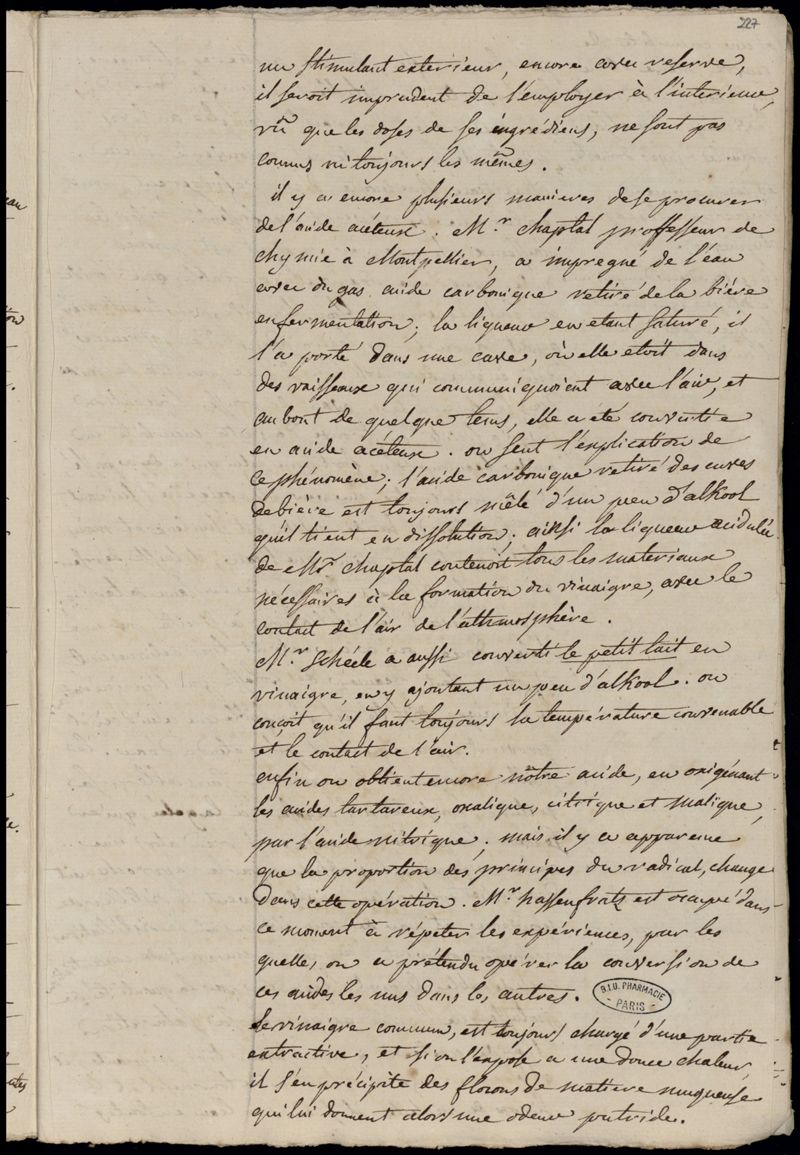 227
un stimulant exterieur, encore avec reserve,
il seroit imprudent de l'employer à l'interieur,
vû que les doses de ses ingrédiens, ne sont pas
connus ni toujours les mêmes.
il y a encore plusieurs manieres de se procurer
de l'acide acéteux. Mr. chaptal proffesseur de
chymie à Montpellier, a impregné de l'eau
avec du gas acide carbonique retiré de la biére
en fermentation; la liqueur en etant saturé, il
l'a porté dans une cave, où elle etoit dans
des vaisseaux qui communiquoient avec l'air, et
au bout de quelque tems, elle a été convertie
en acide acéteux. on sent l'explication de
ce phénomène; l'acide carbonique retiré des cuves
de bière est toujours mêlé d'un peu d'alkool
qu'il tient en dissolution; ainsi la liqueur acidulée
de Mr chaptal contenoit tous les materiaux
nécessaires à la formation du vinaigre, avec le
contact de l'air de l'athmosphère.
Mr. Schéele a aussi converti le petit lait en
vinaigre, en y ajoutant un peu d'alkool. on
conçoit qu'il faut toujours la température convenable
et le contact de l'air.
enfin on obtient encore nôtre acide, en oxigénant
les acides tartareux, oxalique, citrique et malique,
par l'acide nitrique; mais il y a apparence
que la proportion des principes du radical, change
dans cette opération. Mr hassenfratz est occupé dans
ce moment à répeter les expériences, par les
quelles, on a prétendu opérer la conversion de
ces acides les uns dans les autres.
B.I.U. PHARMACIE
PARIS
le vinaigre commun, est toujours chargé d'une partie
extractive, et si on l'expose a une douce chaleur,
il s'en précipite des flocons de matiere muqueuse
qui lui donnent alors une odeur putride.